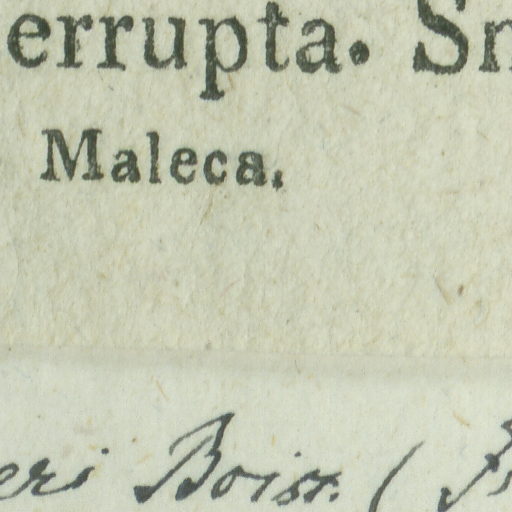 errupta. Sm
Maleca.
eri Boiss. (